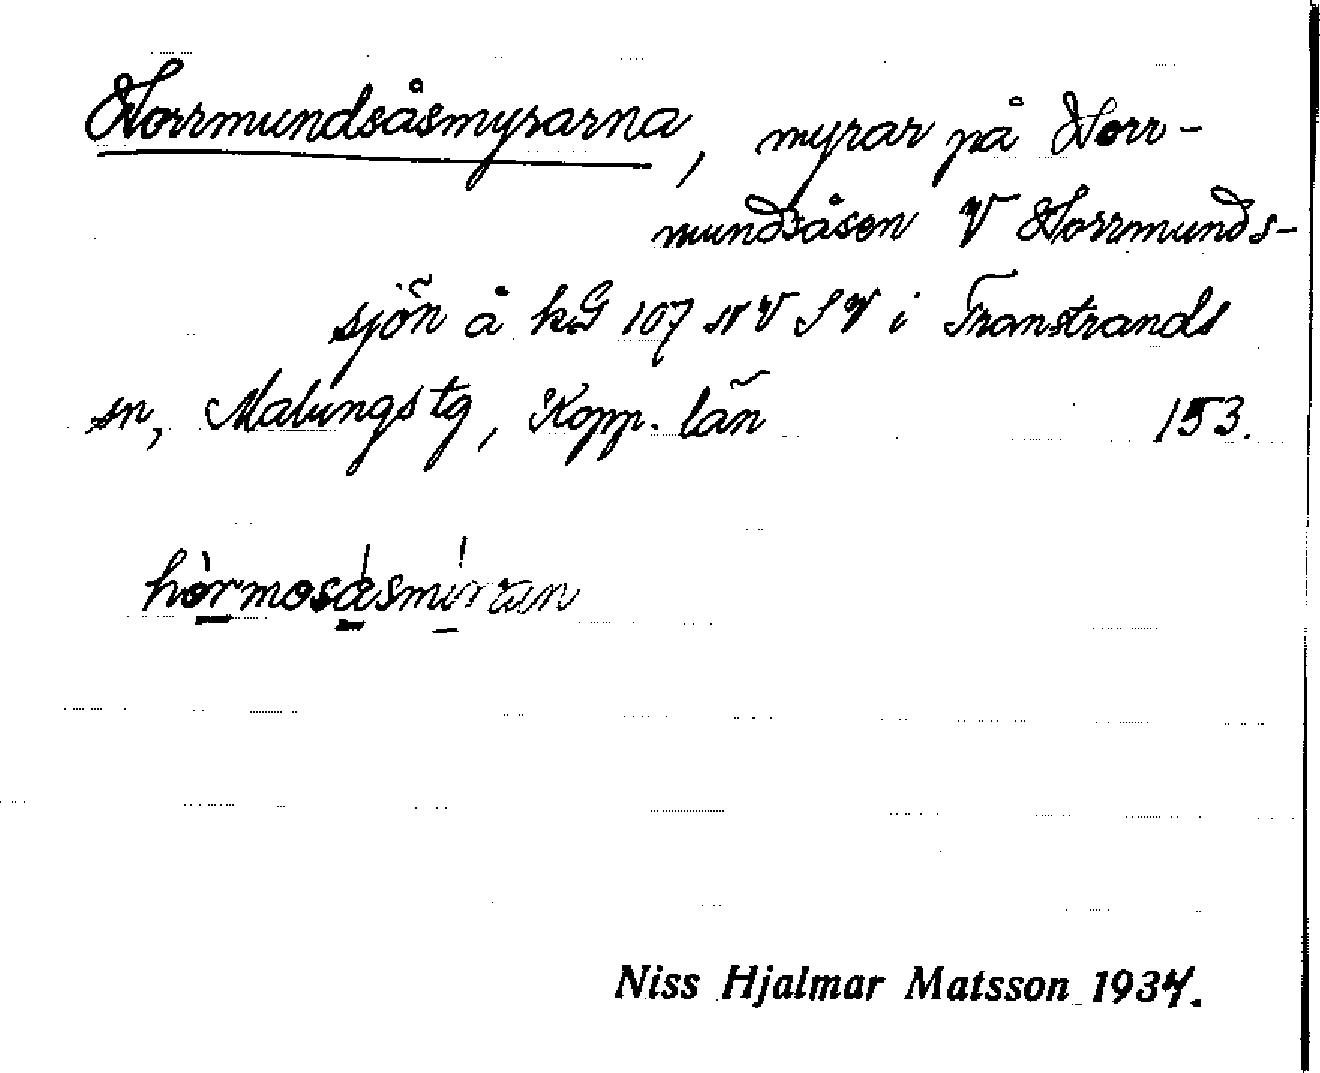 Horrmundsåsmyrarna, myrar på Horr-
mundsåsen V Horrmunds-
sjön å kG 107 NV SV i Transtrands
sn, Malungs tg, Kopp. län 153.
hòrmosåsmíran
Niss Hjalmar Matsson 1934.